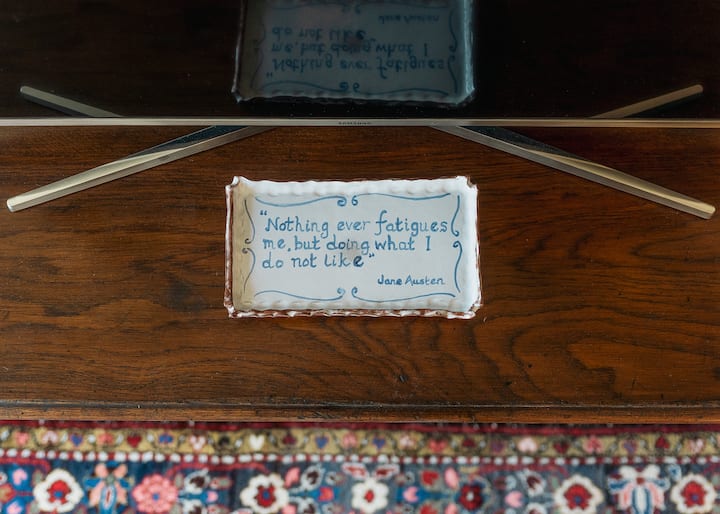 SAMSUNG
"Nothing ever fatigues
me, but doing what I
do not like"
Jane Austen